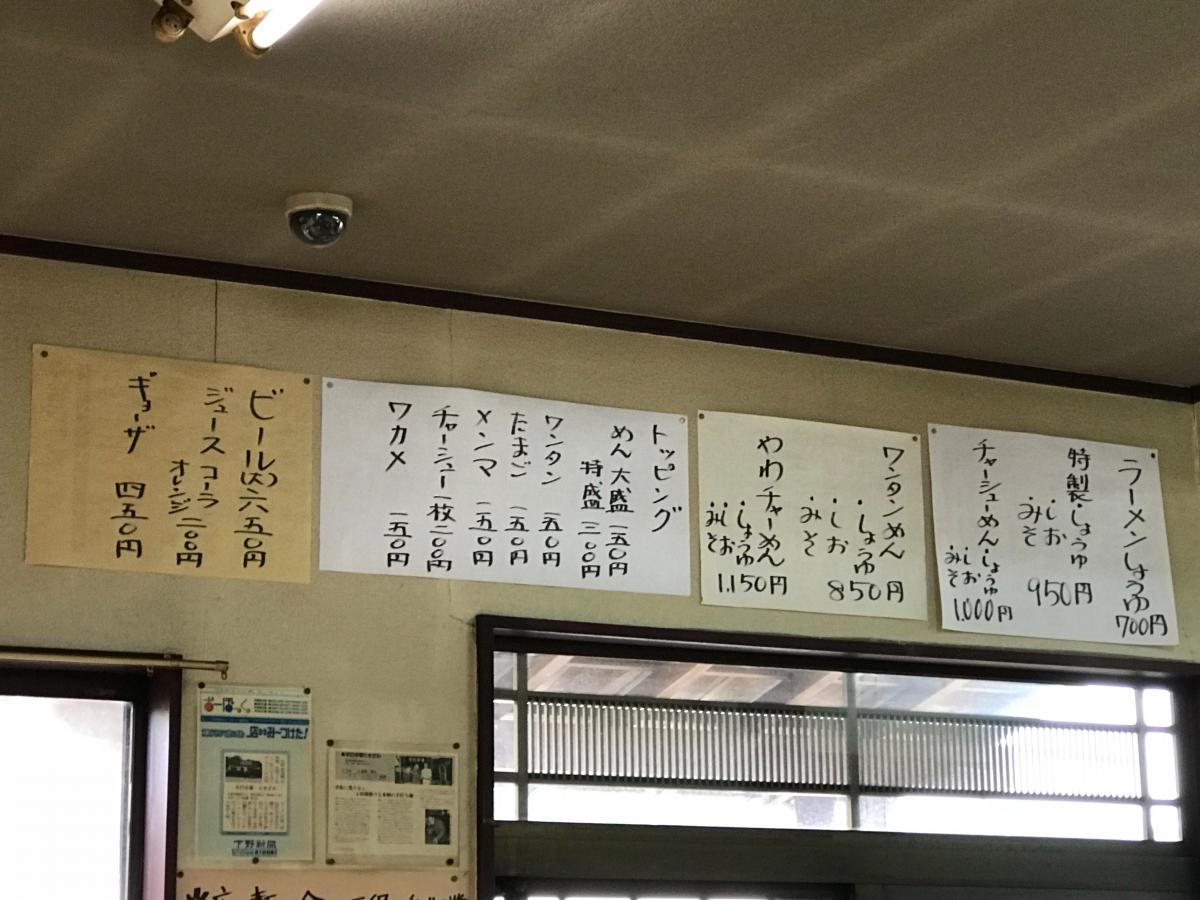 ラーメンしょうゆ
700円
特製・しょうゆ
・しお
・みそ
950円
チャーシューめん・しょうゆ
・しお
・みそ
1,000円
ワンタンめん
・しょうゆ
・しお
・みそ
850円
やわチャーめん
・しょうゆ
・しお
・みそ
1,150円
トッピング
めん大盛 一五〇円
特盛 三〇〇円
ワンタン 一五〇円
たまご 一五〇円
メンマ 一五〇円
チャーシュー一枚二〇〇円
ワカメ 一五〇円
ビール(大)六五〇円
ジュース コーラ
オレンジ 二〇〇円
ギョーザ 四五〇円
店み〜つけた!
下野新聞